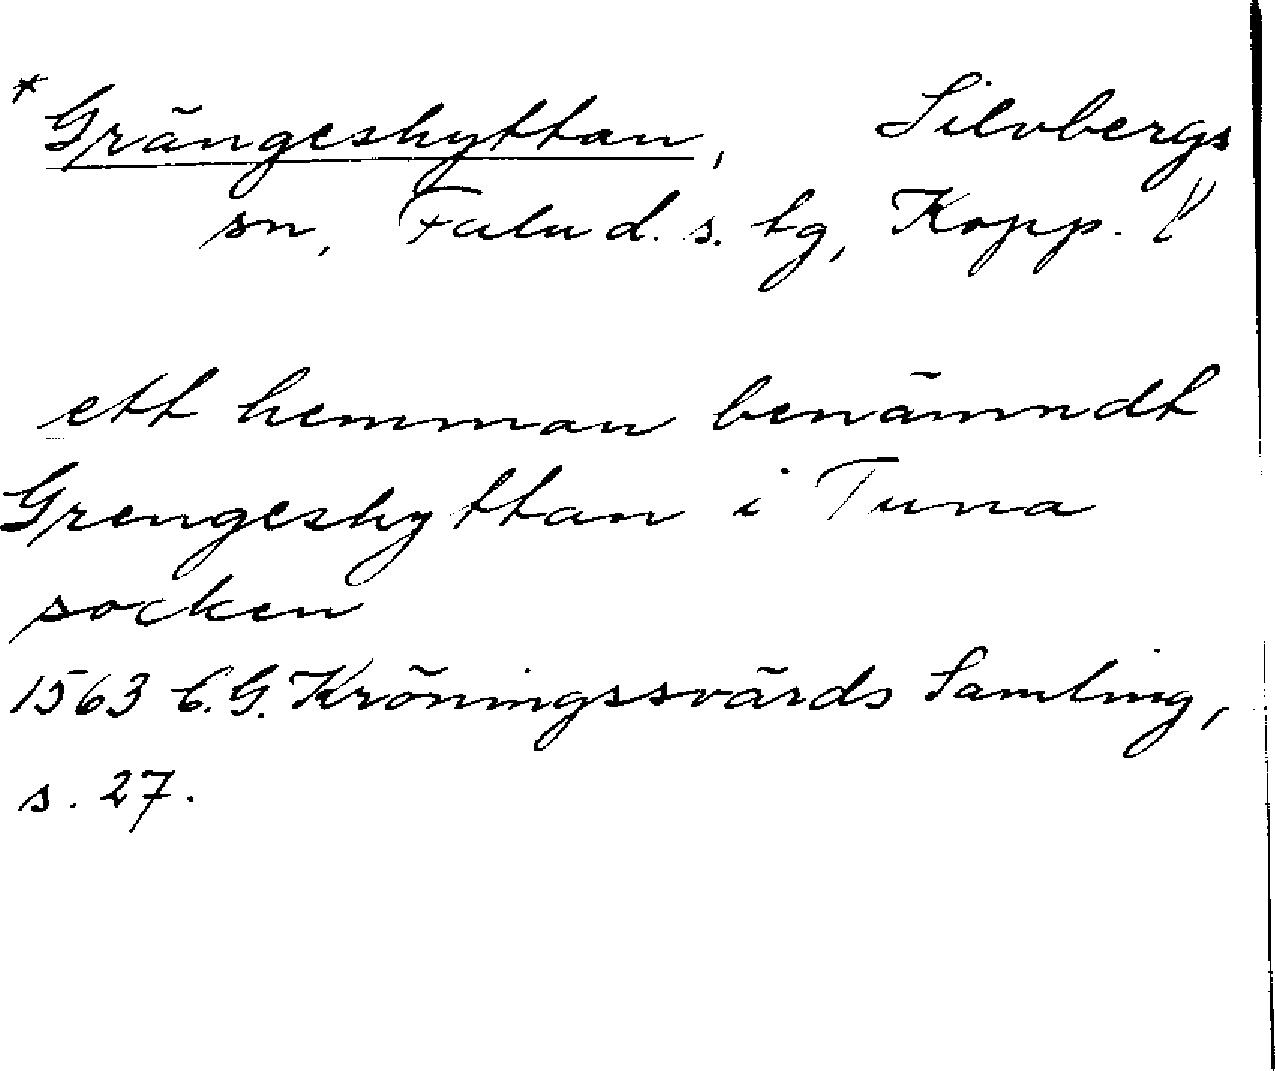 *Grängeshyttan, Silvbergs
sn, Falu d. s. tg, Kopp. l
ett hemman benämndt
Grengeshyttan i Tuna
socken
1563 C. G. Kröningssvärds Samling,
s. 27.